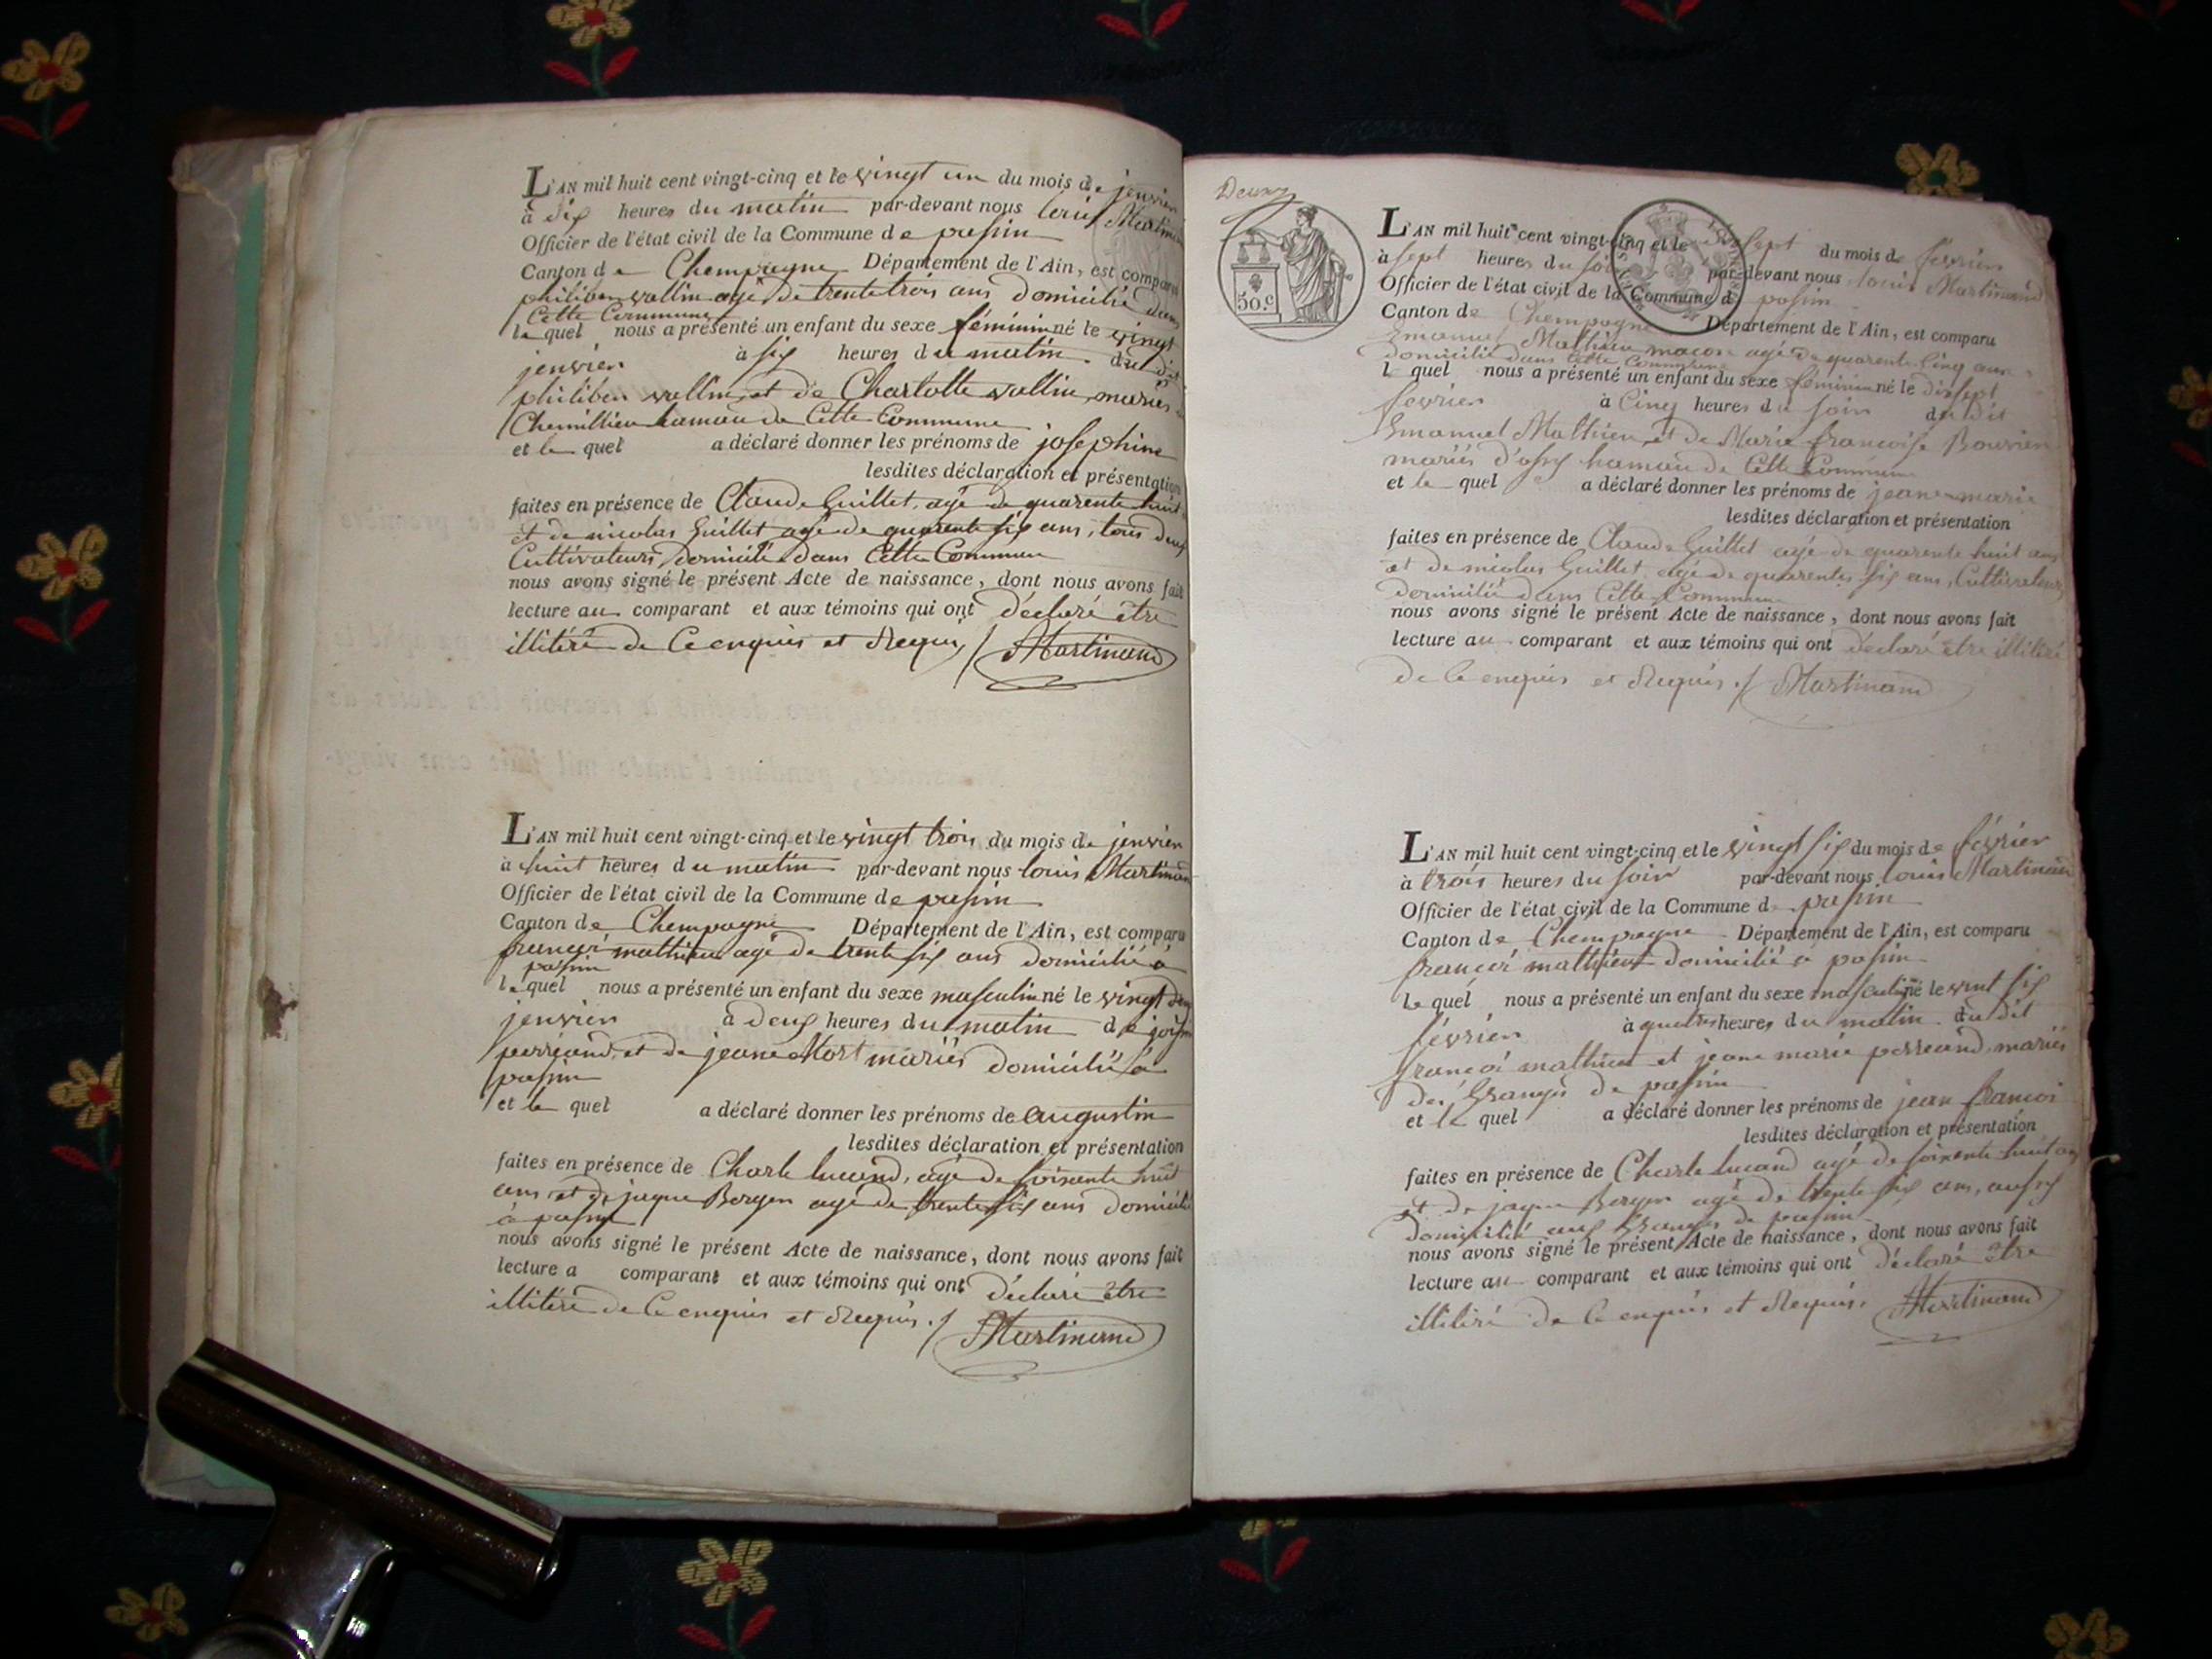 L'AN mil huit cent vingt-cinq et le vingt un du mois de jenvier
à dix heures du matin par-devant nous louis Martinand
Officier de l'état civil de la Commune de passin
Canton de Chempagne Département de l'Ain, est comparu
philiber vallin agé de trente trois ans domicilié dans
Cette Commune
le quel nous a présenté un enfant du sexe féminin né le vingt
jenvier à six heures du matin du dit
philiber vallin, et de Charlotte vallin, mariés
Chemillieu hamau de Cette Commune
et le quel a déclaré donner les prénoms de josephine
lesdites déclaration et présentation
faites en présence de Claude Guillet, agé de quarente huit
et de nicolas Guillet agé de quarente six ans, tous deux
Cultivateurs domicilié dans Cette Commune
nous avons signé le présent Acte de naissance, dont nous avons fait
lecture au comparant et aux témoins qui ont déclaré être
illitéré de Ce enquis et Requis / Martinand
L'AN mil huit cent vingt-cinq et le vingt trois du mois de jenvier
à huit heures du matin par-devant nous louis Martinand
Officier de l'état civil de la Commune de passin
Canton de Chempagne Département de l'Ain, est comparu
françoi mathieu agé de trente six ans domicilié à
passin
le quel nous a présenté un enfant du sexe masculin né le vingt deux
jenvier à deux heures du matin de
perréand, et de jeane Mort mariés domicilié à
passin
et le quel a déclaré donner les prénoms de augustin
lesdites déclaration et présentation
faites en présence de Charle lucand, agé de soixante huit
ans et de jaque Berger agé de trente six ans domicilié
à passin
nous avons signé le présent Acte de naissance, dont nous avons fait
lecture a comparant et aux témoins qui ont déclaré être
illitéré de Ce enquis et Requis ./ Martinand
Deux
50 c
L'AN mil huit cent vingt-cinq et le dix sept du mois de févrien
à sept heures du soir par-devant nous louis Martinand
Officier de l'état civil de la Commune d passin
Canton de Chempagne Département de l'Ain, est comparu
Emanuel Mathieu macon agé de quarente Cinq ans
domicilié dans Cette Commune
le quel nous a présenté un enfant du sexe féminin né le dixsept
fevrier à Cinq heures du soir du dit
Emanuel Mathieu, et de Marie françoise Bouvier
mariés d'ossy hamau de Cette Commune
et le quel a déclaré donner les prénoms de jeane marie
lesdites déclaration et présentation
faites en présence de Claude Guillet agé de quarente huit ans
et de nicolas Guillet agé de quarente six ans, Cultivateurs
domicilié dans Cette Commune
nous avons signé le présent Acte de naissance, dont nous avons fait
lecture au comparant et aux témoins qui ont déclaré être illitéré
de Ce enquis et Requis ./ Martinand
L'AN mil huit cent vingt-cinq et le vingt six du mois de février
à trois heures du soir par-devant nous louis Martinand
Officier de l'état civil de la Commune d passin
Canton de Chempagne Département de l'Ain, est comparu
françoi mathieu domicilié à passin
le quel nous a présenté un enfant du sexe masculin né le vint six
février à quatre heures du matin du dit
françoi mathieu et jeane marie perreand, mariés
des Granges de passin
et le quel a déclaré donner les prénoms de jean françoi
lesdites déclaration et présentation
faites en présence de Charle lucand agé de soixente huit ans
et de jaque Berger agé de trente six ans, aussy
domicilié aux Granges de passin
nous avons signé le présent Acte de naissance, dont nous avons fait
lecture au comparant et aux témoins qui ont déclaré être
illitéré de Ce enquis et Requis. Martinand